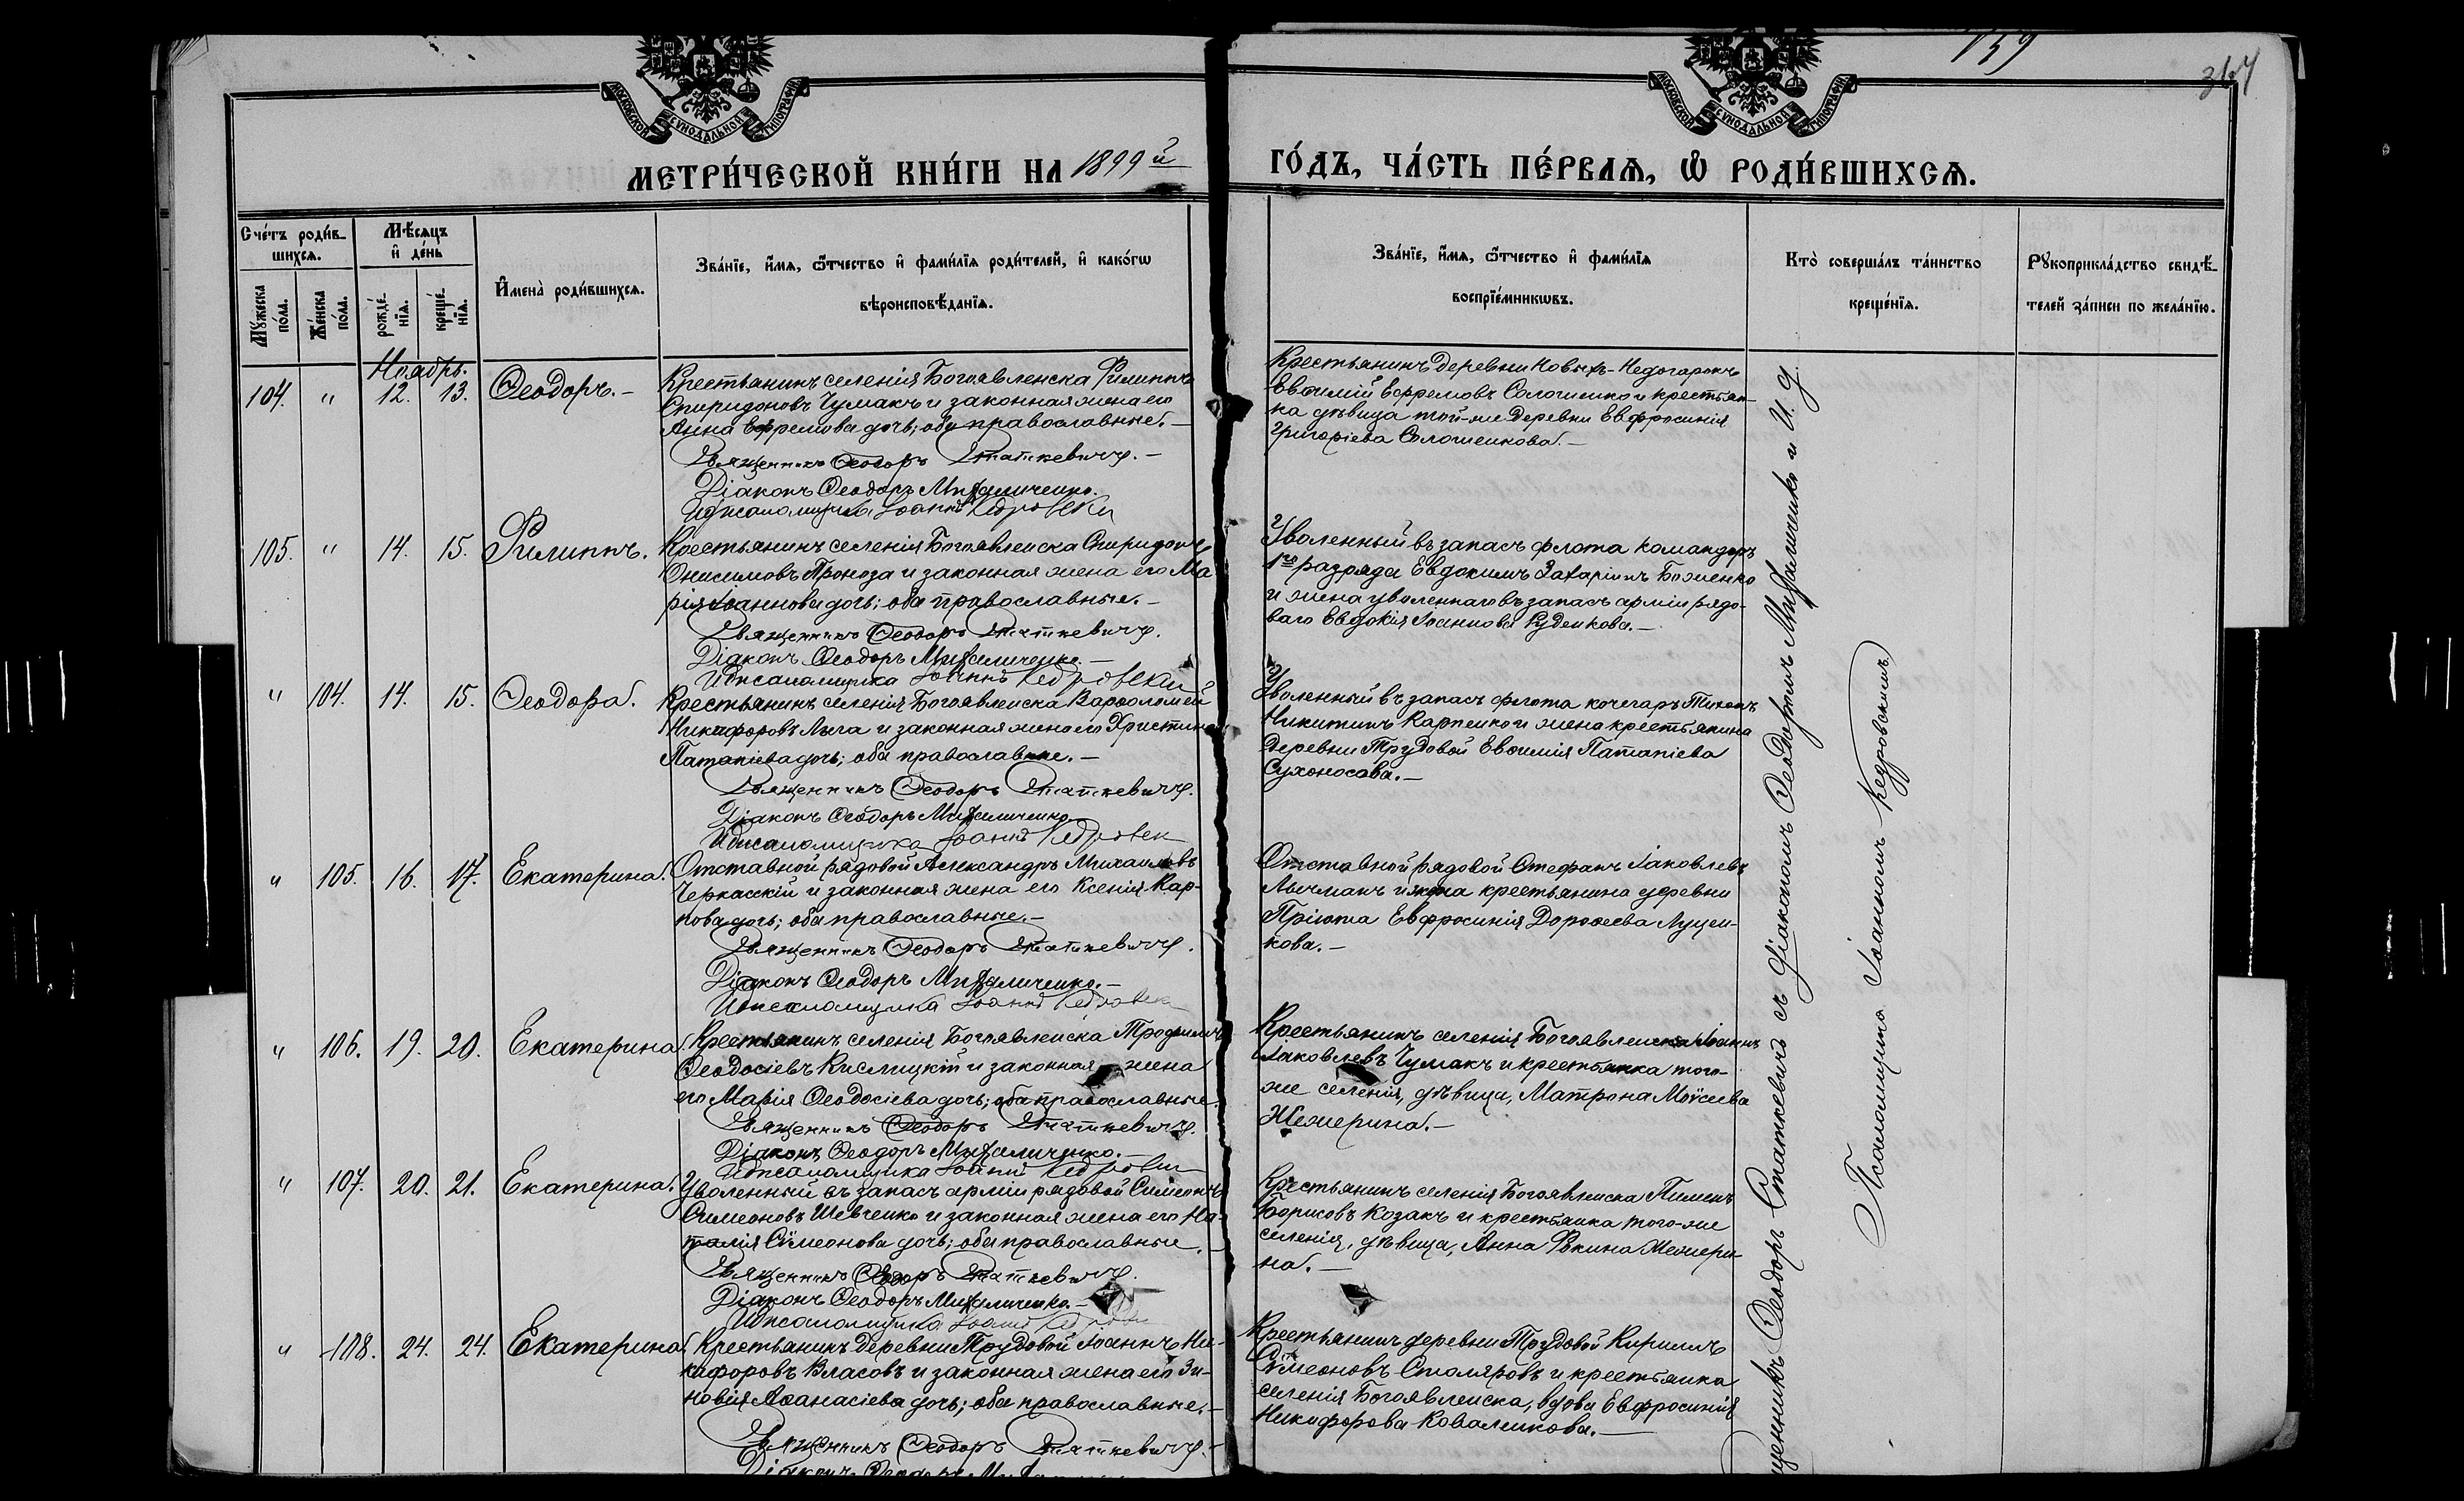 159
364
МОСКОВСКОЙ СѴНОДАЛЬНОЙ ТИПОГРАФІИ
МОСКОВСКОЙ СѴНОДАЛЬНОЙ ТИПОГРАФІИ
МЕТРИ́ЧЕСКОЙ КНИ́ГИ НА 1899й
ГО́ДЪ, ЧА́СТЬ ПЕ́РВАѦ, Ѽ РОДИ́ВШИХСѦ.
Сче́тъ роди́в-
шихсѧ.
Мꙋ́жеска по́ла.
Же́нска по́ла.
Мѣ́сѧцъ
и҆ де́нь
рожде́-
нїѧ.
креще́-
нїѧ.
И҆мена̀ роди́вшихсѧ.
Зва́нїе, и҆́мѧ, ѻ҆́тчество и҆ фами́лїѧ роди́телей, и҆ како́гѡ
вѣроисповѣ́данїѧ.
Зва́нїе, и҆́мѧ, ѻ҆́тчество и҆ фами́лїѧ
воспрїе́мникѡвъ.
Кто̀ соверша́лъ та́инство
креще́нїѧ.
Рꙋкоприкла́дство свидѣ́-
телей за́писи по жела́нїю.
Ноябрь.
104. " 12. 13. Ѳеодоръ.-
Крестьянинъ селенія Богоявленска Филиппъ
Спиридоновъ Чумакъ и законная жена его
Анна Ефремова дочь; оба православные.-
Священникъ Ѳеодоръ Статкевичъ.-
Діаконъ Ѳеодоръ Михаличенко.
И д псаломщика Іоаннъ Кедровскій
Крестьянинъ деревни Новыхъ-Недогаръ
Евѳимій Ефремовъ Солошенко и крестьян-
ка дѣвица той-же деревни Евфросинія
Григоріева Солошенкова.-
105. " 14. 15. Филиппъ.
Крестьянинъ селенія Богоявленска Спиридонъ
Онисимовъ Проноза и законная жена его Ма
рія Іоаннова дочь; оба православные.-
Священникъ Ѳеодоръ Статкевичъ.
Діаконъ Ѳеодоръ Михаличенко.-
И д псаломщика Іоаннъ Кедровскій
Уволенный въ запасъ флота командоръ
1го разряда Евдокимъ Захаріинъ Боженко
и жена уволеннаго въ запасъ арміи рядо-
ваго Евдокія Іоаннова Руденкова.-
" 104. 14. 15. Ѳеодора.
Крестьянинъ селенія Богоявленска Варѳоломей
Никифоровъ Лыга и законная жена его Христина
Патапіева дочь; оба православные.-
Священникъ Ѳеодоръ Статкевичъ.
Діаконъ Ѳеодоръ Михаличенко.
И д псаломщика Іоаннъ Кедровск
Уволенный въ запасъ флота кочегаръ Тихонъ
Никитинъ Карпенко и жена крестьянина
деревни Трудовой Евѳимія Патапіева
Сухоносова.-
" 105. 16. 17. Екатерина.
Отставной рядовой Александръ Михаиловъ
Черкасскій и законная жена его Ксенія Кар-
пова дочь; оба православные.-
Священникъ Ѳеодоръ Статкевичъ.
Діаконъ Ѳеодоръ Михаличенко.-
И д псаломщика Іоаннъ Кедровск
Отставной рядовой Стефанъ Іаковлевъ
Лычманъ и жена крестьянина деревни
Пріюта Евфросинія Дороѳеева Луцен-
кова.-
" 106. 19. 20. Екатерина.
Крестьянинъ селенія Богоявленска Трофимъ
Ѳеодосіевъ Кислицкій и законная жена
его Марія Ѳеодосіева дочь; оба православные.
Священникъ Ѳеодоръ Статкевичъ.
Діаконъ Ѳеодоръ Михаличенко.-
И д псаломщика Іоаннъ Кедровск
Крестьянинъ селенія Богоявленска Іоаннъ
Іаковлевъ Чумакъ и крестьянка того-
же селенія, дѣвица, Матрона Моѵсеева
Жежерина.-
" 107. 20. 21. Екатерина.
Уволенный въ запасъ арміи рядовой Симеонъ
Симеоновъ Шевченко и законная жена его На-
талія Сѵмеонова дочь; оба православные.-
Священникъ Ѳеодоръ Статкевичъ.
Діаконъ Ѳеодоръ Михаличенко.-
И д псаломщика Іоаннъ Кедровск
Крестьянинъ селенія Богоявленска Пименъ
Борисовъ Козакъ и крестьянка того-же
селенія, дѣвица, Анна Ѳокина Жежери-
на.-
" 108. 24. 24. Екатерина.
Крестьянинъ деревни Трудовой Іоаннъ Ни-
кифоровъ Власовъ и законная жена его Зи-
новія Аѳанасіева дочь; оба православные.-
Священникъ Ѳеодоръ Статкевичъ.-
Діаконъ Ѳеодоръ
Крестьянинъ деревни Трудовой Кириллъ
Сѵмеоновъ Столяровъ и крестьянка
селенія Богоявленска, вдова Евфросинія
Никифорова Коваленкова.-
щенникъ Ѳеодоръ Статкевичъ съ діакономъ Ѳеодоромъ Михаличенко и И. д.
Псаломщика Іоанномъ Кедровскимъ